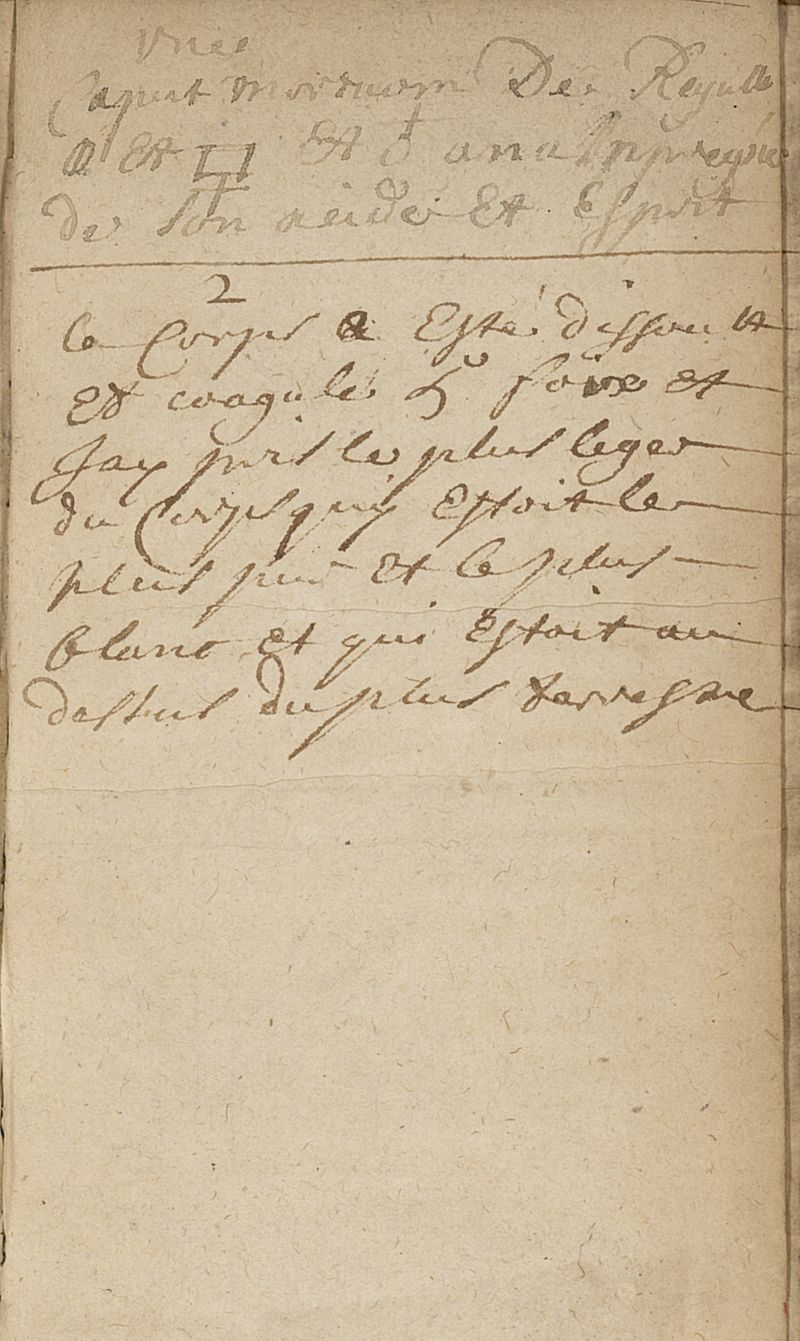 vnie
Caput mortuom De Regulle
Et Et ana Impregnie
de son acide Et Esprit
2
le Corps a Esté dissou et
Et coagulé 5 fois et
Jay pris le plus leger
du Corps quy Estoit le
plus pur et le plus
blanc et qui Estoit au
dessus du plus terrestre